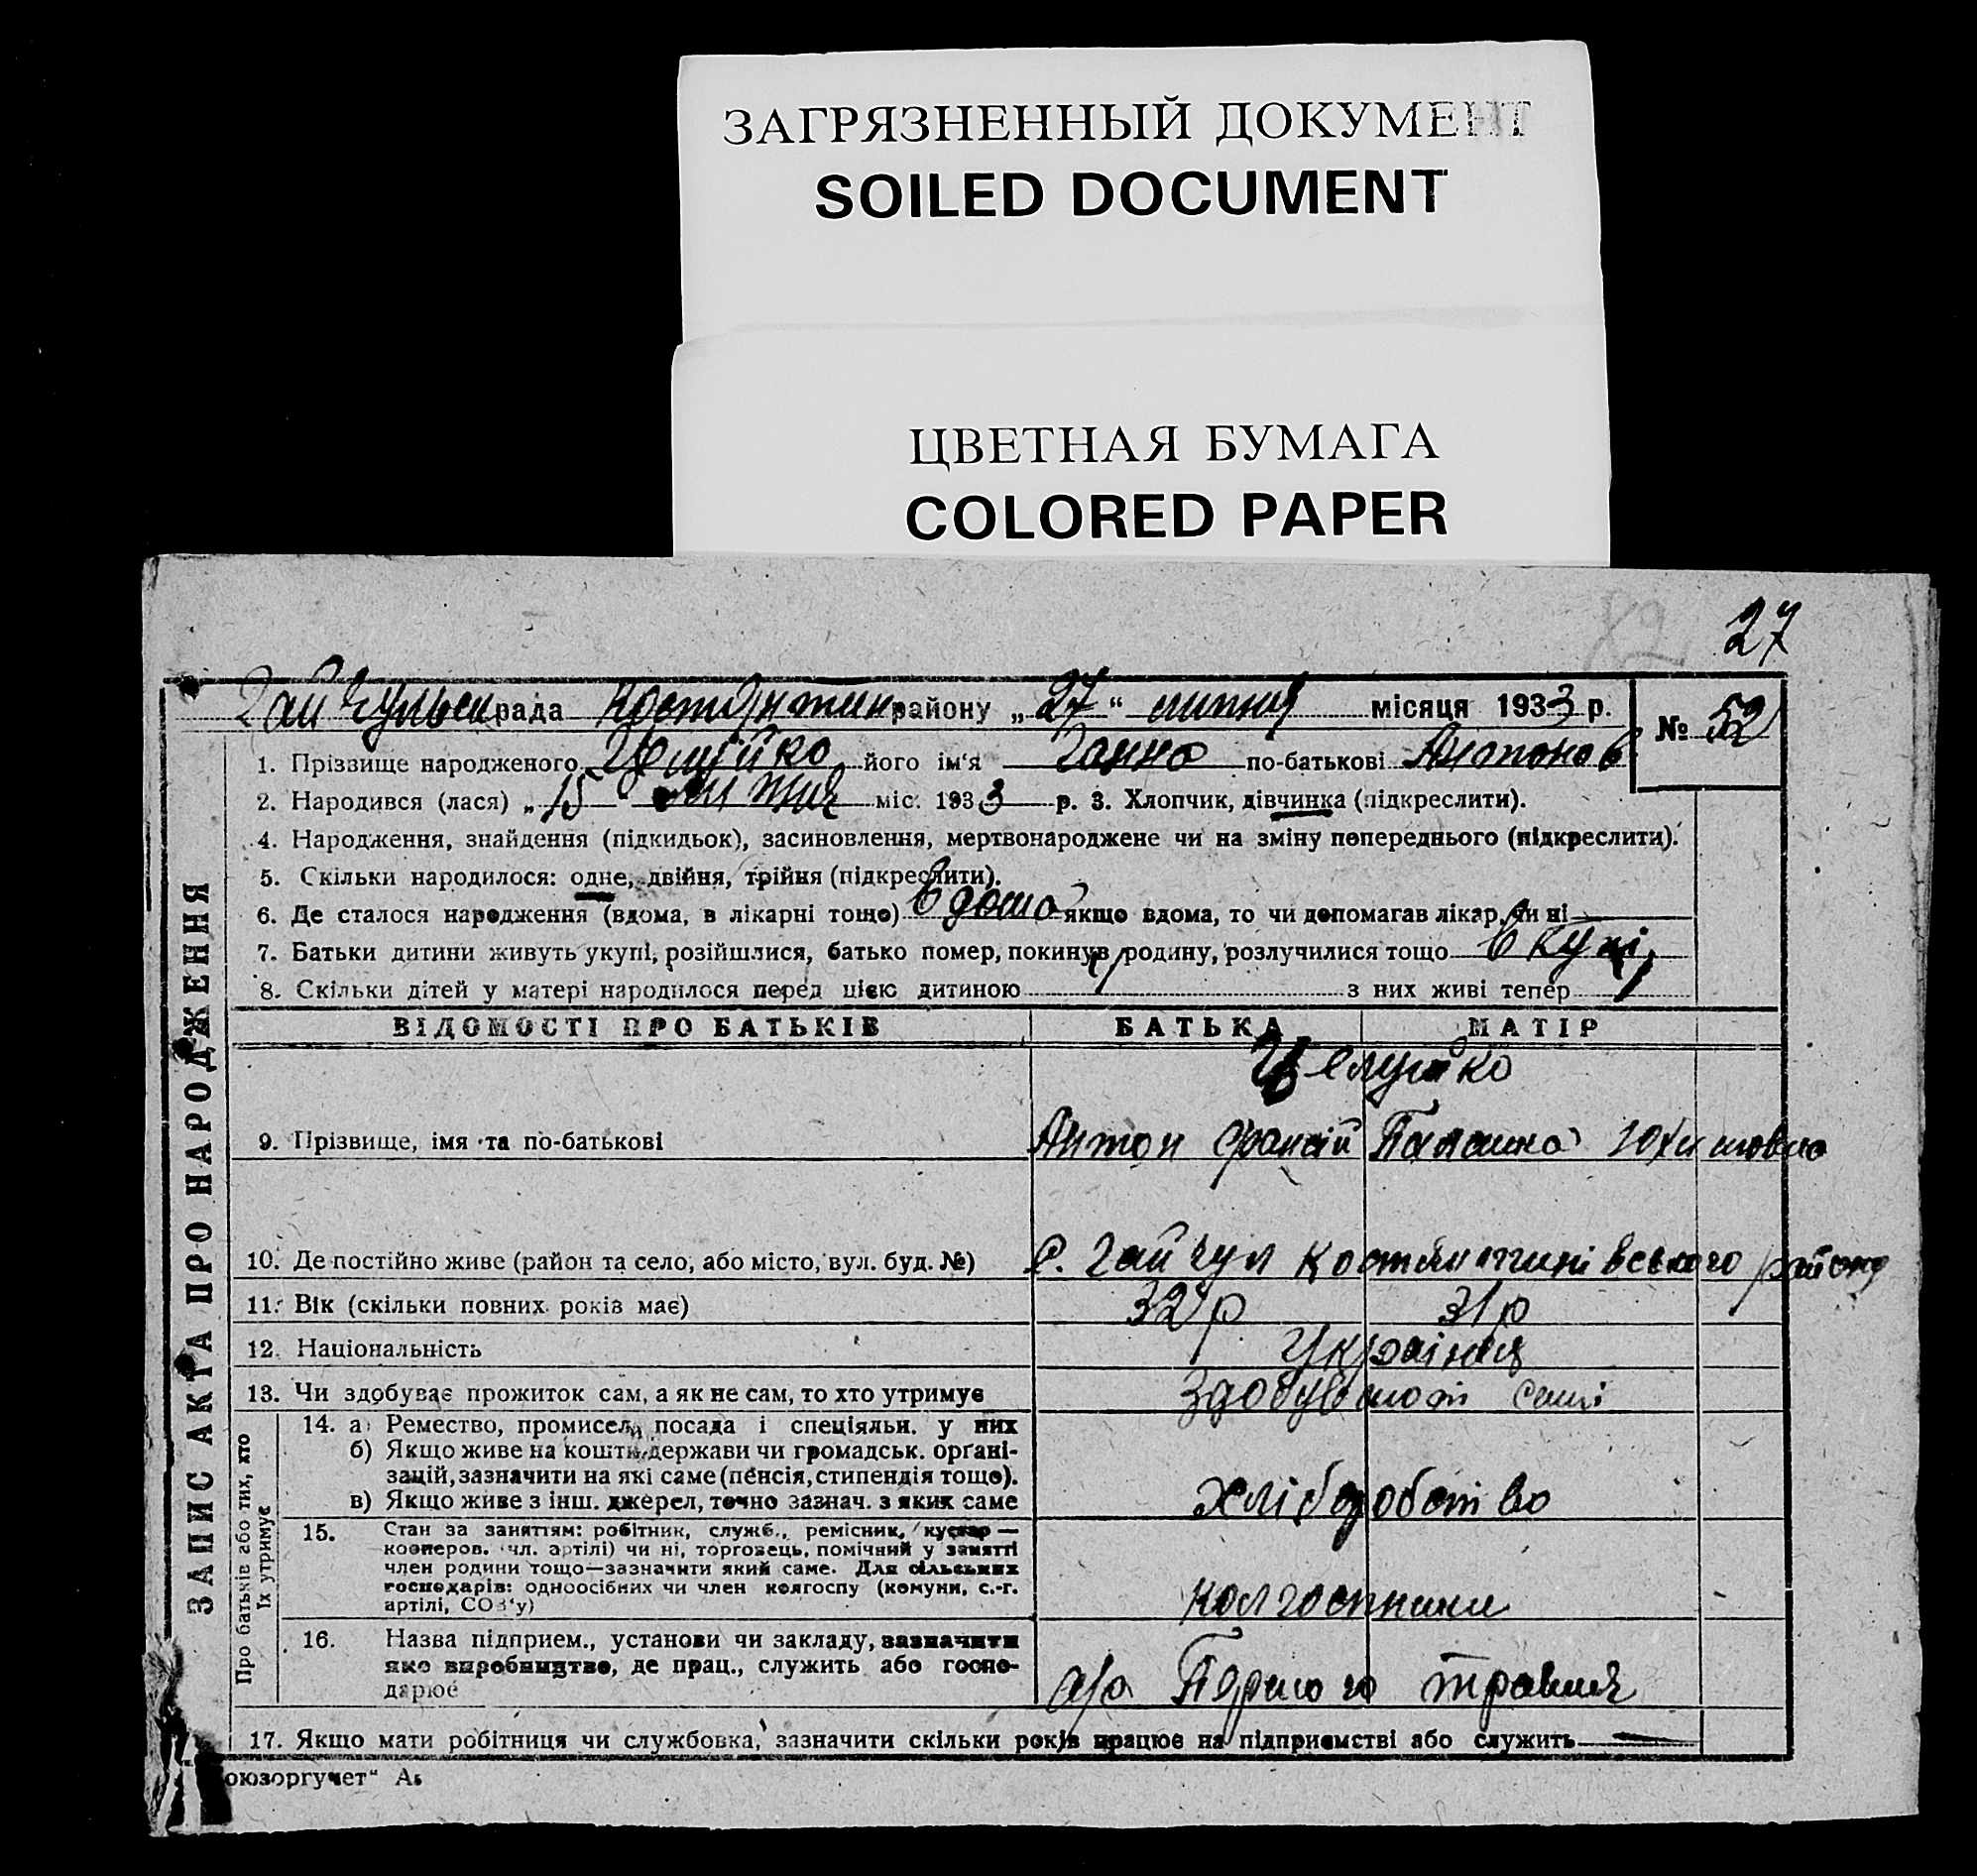 ЗАГРЯЗНЕННЫЙ ДОКУМЕНТ
SOILED DOCUMENT
ЦВЕТНАЯ БУМАГА
COLORED PAPER
82
27
Гайчульськ рада Костянтин. району „27“ липня місяця 1933 р. № 52
1. Прізвище народженого Целуйко його ім'я Ганна по-батькові Антонов
2. Народився (лася) „15 липня міс. 1933 р. 3. Хлопчик, дівчинка (підкреслити).
4. Народження, знайдення (підкидьок), засиновлення, мертвонароджене чи на зміну попереднього (підкреслити).
5. Скільки народилося: одне, двійня, трійня (підкреслити).
6. Де сталося народження (вдома, в лікарні тощо) вдома якщо вдома, то чи допомагав лікар, чи ні
7. Батьки дитини живуть укупі, розійшлися, батько помер, покинув родину, розлучилися тощо вкупі
8. Скільки дітей у матері народилося перед цією дитиною 1 з них живі тепер 1
ЗАПИС АКТА ПРО НАРОДЖЕННЯ
ВІДОМОСТІ ПРО БАТЬКІВ БАТЬКА МАТІР
Целуйко
9. Прізвище, імя та по-батькові Антон Юхимовна
10. Де постійно живе (район та село, або місто, вул. буд. №) с. Гайчул Костянтинівського району
11. Вік (скільки повних років має) 32 р 31 р
12. Національність Українця
13. Чи здобуває прожиток сам, а як не сам, то хто утримує Здобувають самі
Про батьків або тих, хто їх утримує
14. а) Ремество, промисел, посада і спеціяльн. у них
б) Якщо живе на кошти держави чи громадськ. орґані-
зацій, зазначити на які саме (пенсія, стипендія тощо).
в) Якщо живе з інш. джерел, точно зазнач. з яких саме хліборобство
15. Стан за заняттям: робітник, служб., ремісник, кустар —
кооперов. чл. артілі) чи ні, торговець, помічний у занятті
член родини тощо—зазначити який саме. Для сільських
господарів: одноосібних чи член колгоспу (комуни, с.-г.
артілі, СОЗ'у) колгоспники
16. Назва підприєм., установи чи закладу, зазначити
яке виробництво, де прац., служить або госпо-
дарює а/а Першого травня
17. Якщо мати робітниця чи службовка, зазначити скільки років працює на підприємстві або служить
оюзоргучет“